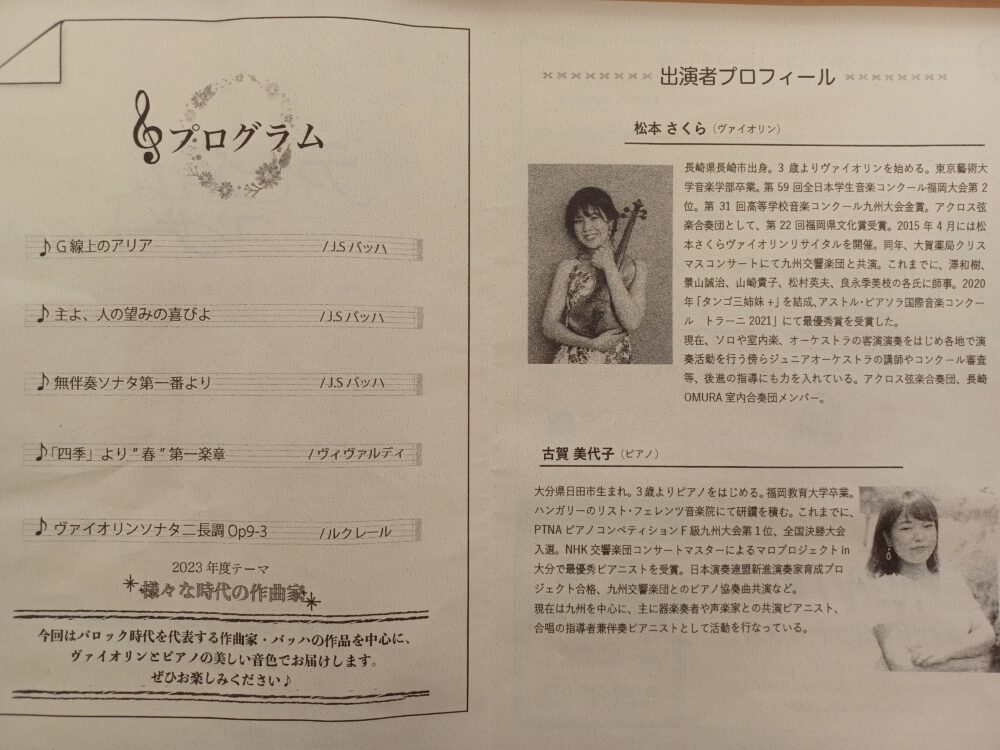 プログラム
G 線上のアリア /J.S バッハ
主よ、人の望みの喜びよ /J.S バッハ
無伴奏ソナタ第一番より /J.S バッハ
「四季」より ” 春 ” 第一楽章 / ヴィヴァルディ
ヴァイオリンソナタ二長調 Op9-3 /ルクレール
2023 年度テーマ
様々な時代の作曲家
今回はバロック時代を代表する作曲家・バッハの作品を中心に、
ヴァイオリンとピアノの美しい音色でお届けします。
ぜひお楽しみください♪
出演者プロフィール
松本 さくら（ヴァイオリン）
長崎県長崎市出身。3 歳よりヴァイオリンを始める。東京藝術大
学音楽学部卒業。第 59 回全日本学生音楽コンクール福岡大会第 2
位。第 31 回高等学校音楽コンクール九州大会金賞。アクロス弦
楽合奏団として、第 22 回福岡県文化賞受賞。2015 年 4 月には松
本さくらヴァイオリンリサイタルを開催。同年、大賀薬局クリス
マスコンサートにて九州交響楽団と共演。これまでに、澤和樹、
景山誠治、山崎貴子、松村英夫、良永季美枝の各氏に師事。2020
年「タンゴ三姉妹 +」を結成、アストル・ピアソラ国際音楽コンクー
ル　トラーニ 2021」にて最優秀賞を受賞した。
現在、ソロや室内楽、オーケストラの客演演奏をはじめ各地で演
奏活動を行う傍らジュニアオーケストラの講師やコンクール審査
等、後進の指導にも力を入れている。アクロス弦楽合奏団、長崎
OMURA 室内合奏団メンバー。
古賀 美代子（ピアノ）
大分県日田市生まれ。3 歳よりピアノをはじめる。福岡教育大学卒業。
ハンガリーのリスト・フェレンツ音楽院にて研鑽を積む。これまでに、
PTNA ピアノコンペティション F 級九州大会第 1 位、全国決勝大会
入選。NHK 交響楽団コンサートマスターによるマロプロジェクト in
大分で最優秀ピアニストを受賞。日本演奏連盟新進演奏家育成プロ
ジェクト合格、九州交響楽団とのピアノ協奏曲共演など。
現在は九州を中心に、主に器楽奏者や声楽家との共演ピアニスト、
合唱の指導者兼伴奏ピアニストとして活動を行なっている。